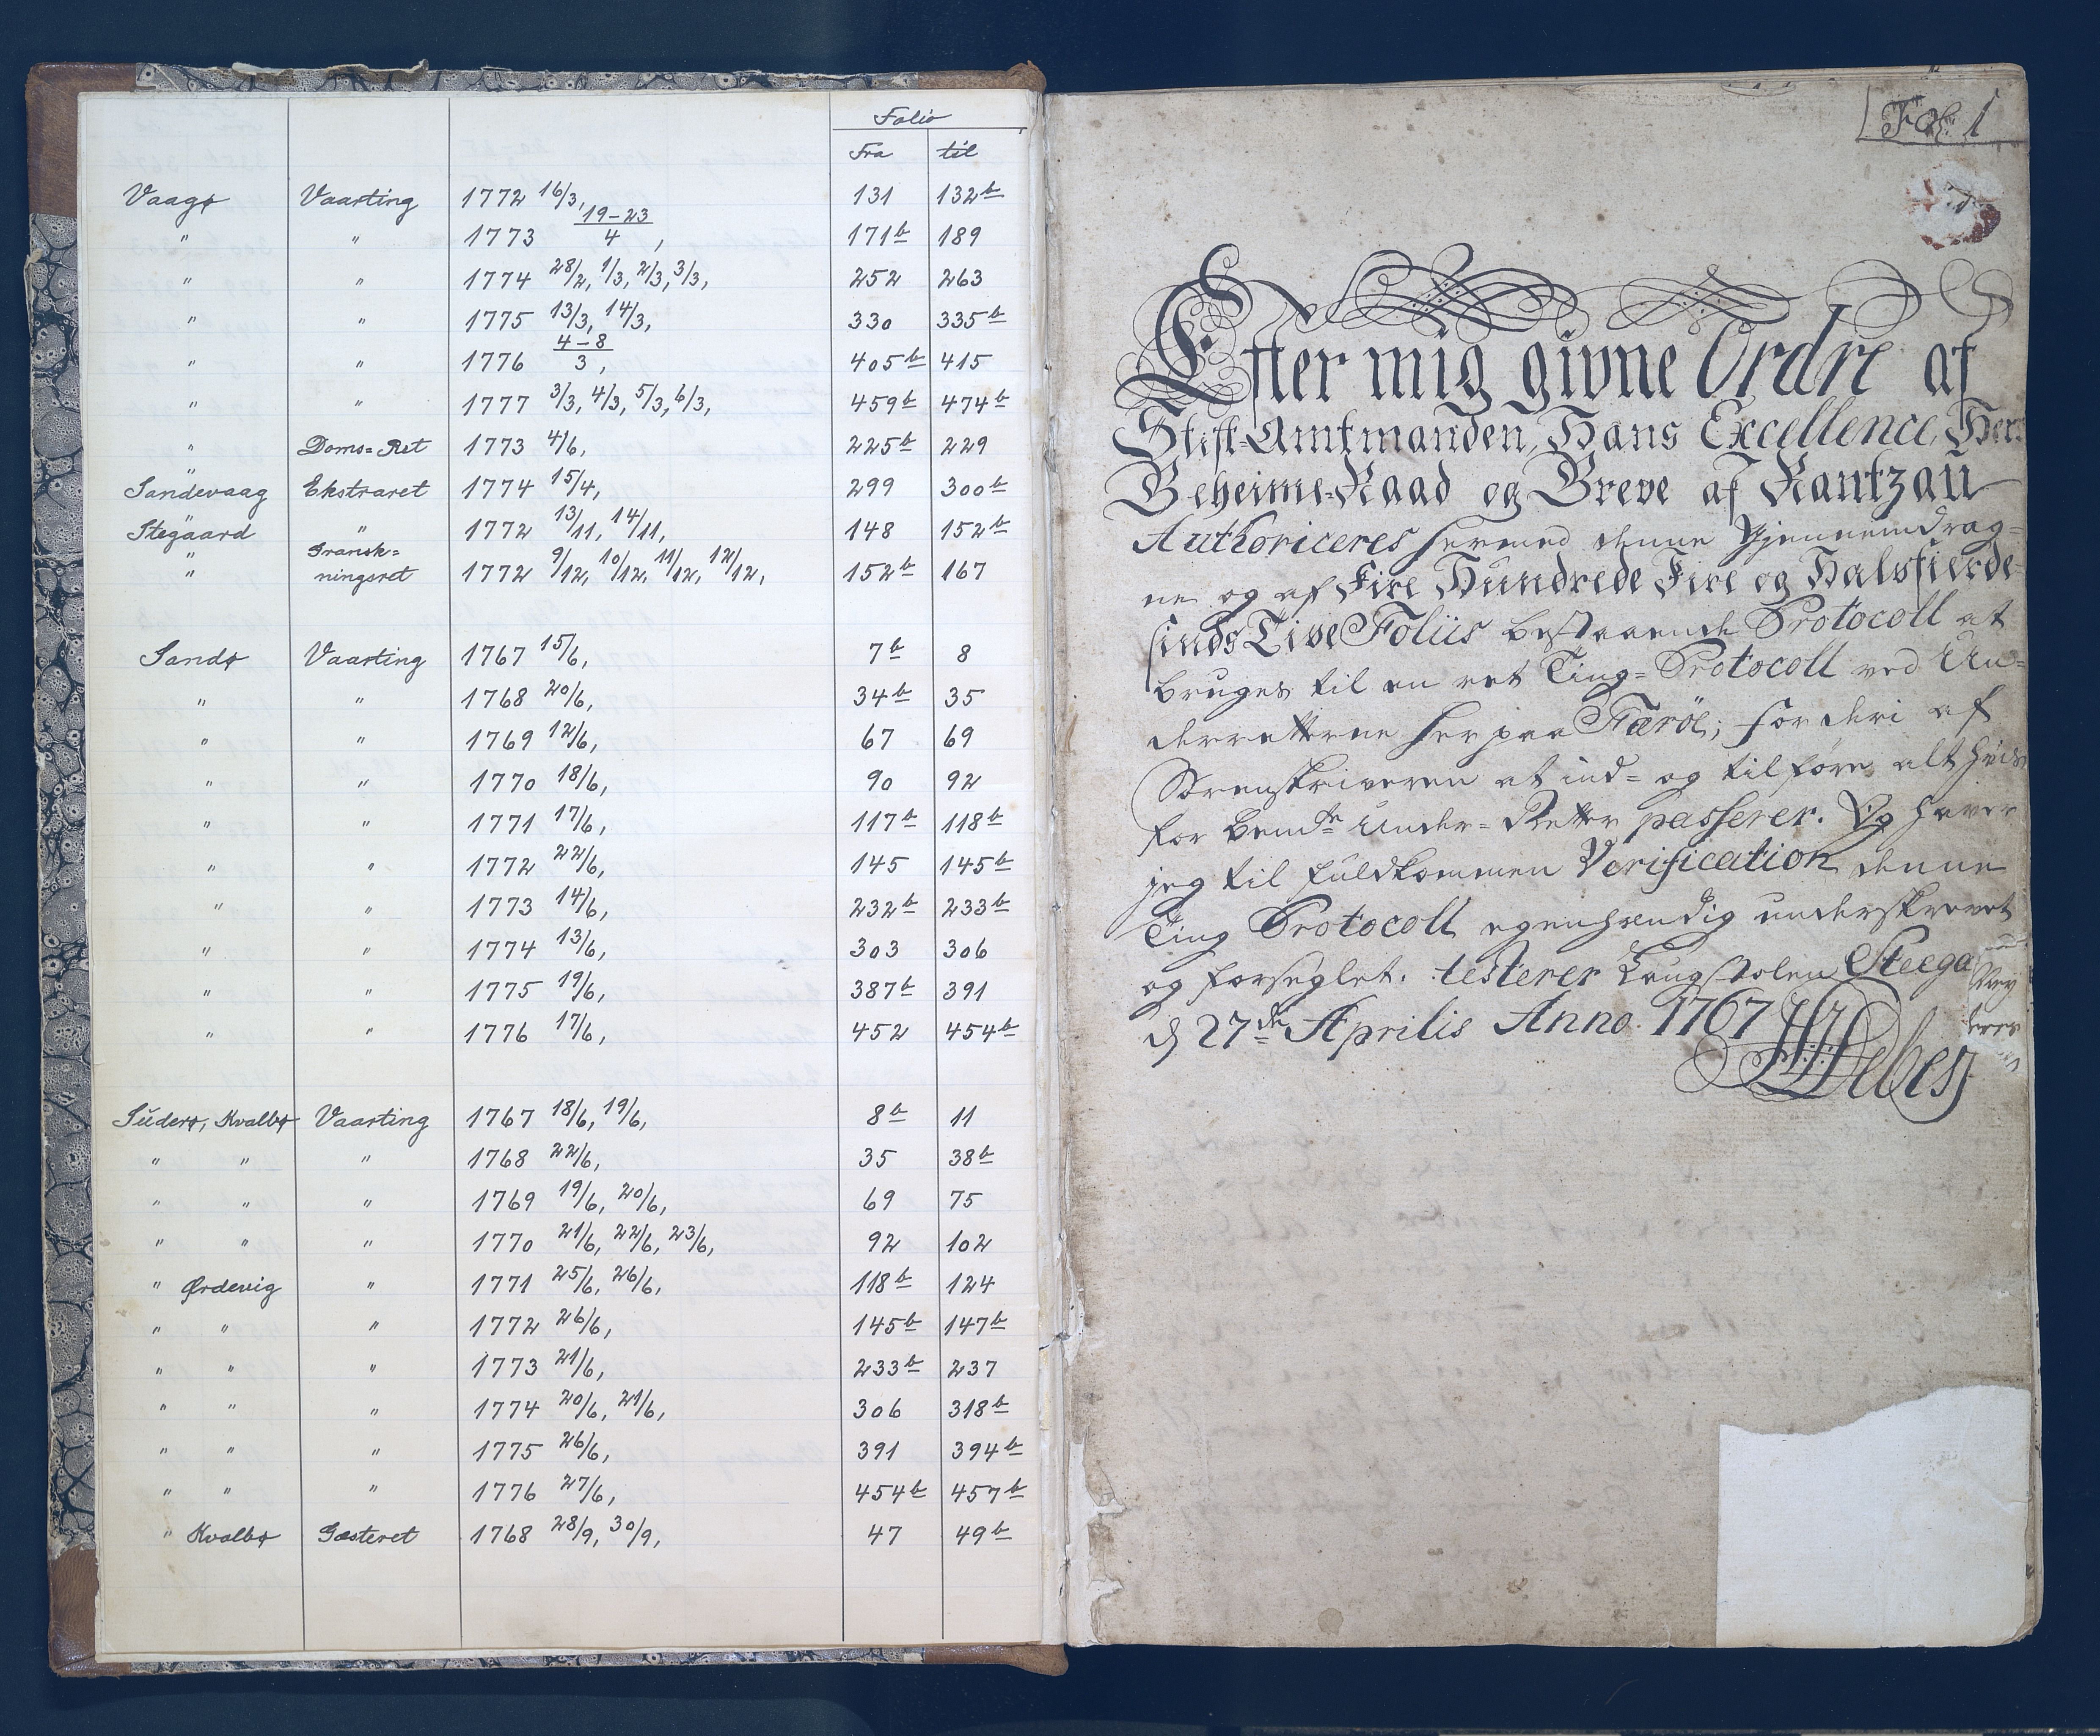 Folio
Fra til
Vaagø Vaarting 1772 16/3, 131 132b
" " 1773 19-23/4, 171b 189
" " 1774 28/2, 1/3, 2/3, 3/3, 252 263
" " 1775 13/3, 14/3, 330 335b
" " 1776 4-8/3, 405b 415
" " 1777 3/3, 4/3, 5/3, 6/3, 459b 474b
" Doms=Ret 1773 4/6, 225b 229
" Sandevaag Ekstraret 1774 15/4, 299 300b
" Stegaard " 1772 13/11, 14/11, 148 152b
" " Gransk=
ningsret 1772 9/12, 10/12, 11/12, 12/12, 152b 167
Sandø Vaarting 1767 15/6, 7b 8
" " 1768 20/6, 34b 35
" " 1769 12/6, 67 69
" " 1770 18/6, 90 92
" " 1771 17/6, 117b 118b
" " 1772 22/6, 145 145b
" " 1773 14/6, 232b 233b
" " 1774 13/6, 303 306
" " 1775 19/6, 387b 391
" " 1776 17/6, 452 454b
Suderø, Kvalbø Vaarting 1767 18/6, 19/6, 8b 11
" " " 1768 22/6, 35 38b
" " " 1769 19/6, 20/6, 69 75
" " " 1770 21/6, 22/6, 23/6, 92 102
" Ørdevig " 1771 25/6, 26/6, 118b 124
" " " 1772 26/6, 145b 147b
" " " 1773 21/6, 233b 237
" " " 1774 20/6, 21/6, 306 318b
" " " 1775 26/6, 391 394b
" " " 1776 27/6, 454b 457b
" Kvalbø Gæsteret 1768 28/9, 30/9, 47 49b
Fol: 1
Efter mig givne Ordre af
Stift=Amtmanden, Hans Excellence, Her:
Geheime=Raad og Greve af Rantzau
Authoriceres hermed denne Gjennemdrag=
ne og af Fire Hundrede Fire og Halvfierde=
sinds Tive Foliis bestaaende Protocoll at
bruges til en ret Ting=Protocoll ved Un=
derretterne her paa Færöe; for deri af
Sorenskriveren at ind= og tilføre alt hvis
for bemte Under=Retter passerer. Og haver
jeg til fuldkommen Verification denne
Ting Protocoll egenhændig underskrevet
og forseglet. testerer Laugstolen Steega
d 27de Aprilis Anno 1767
HHDebes